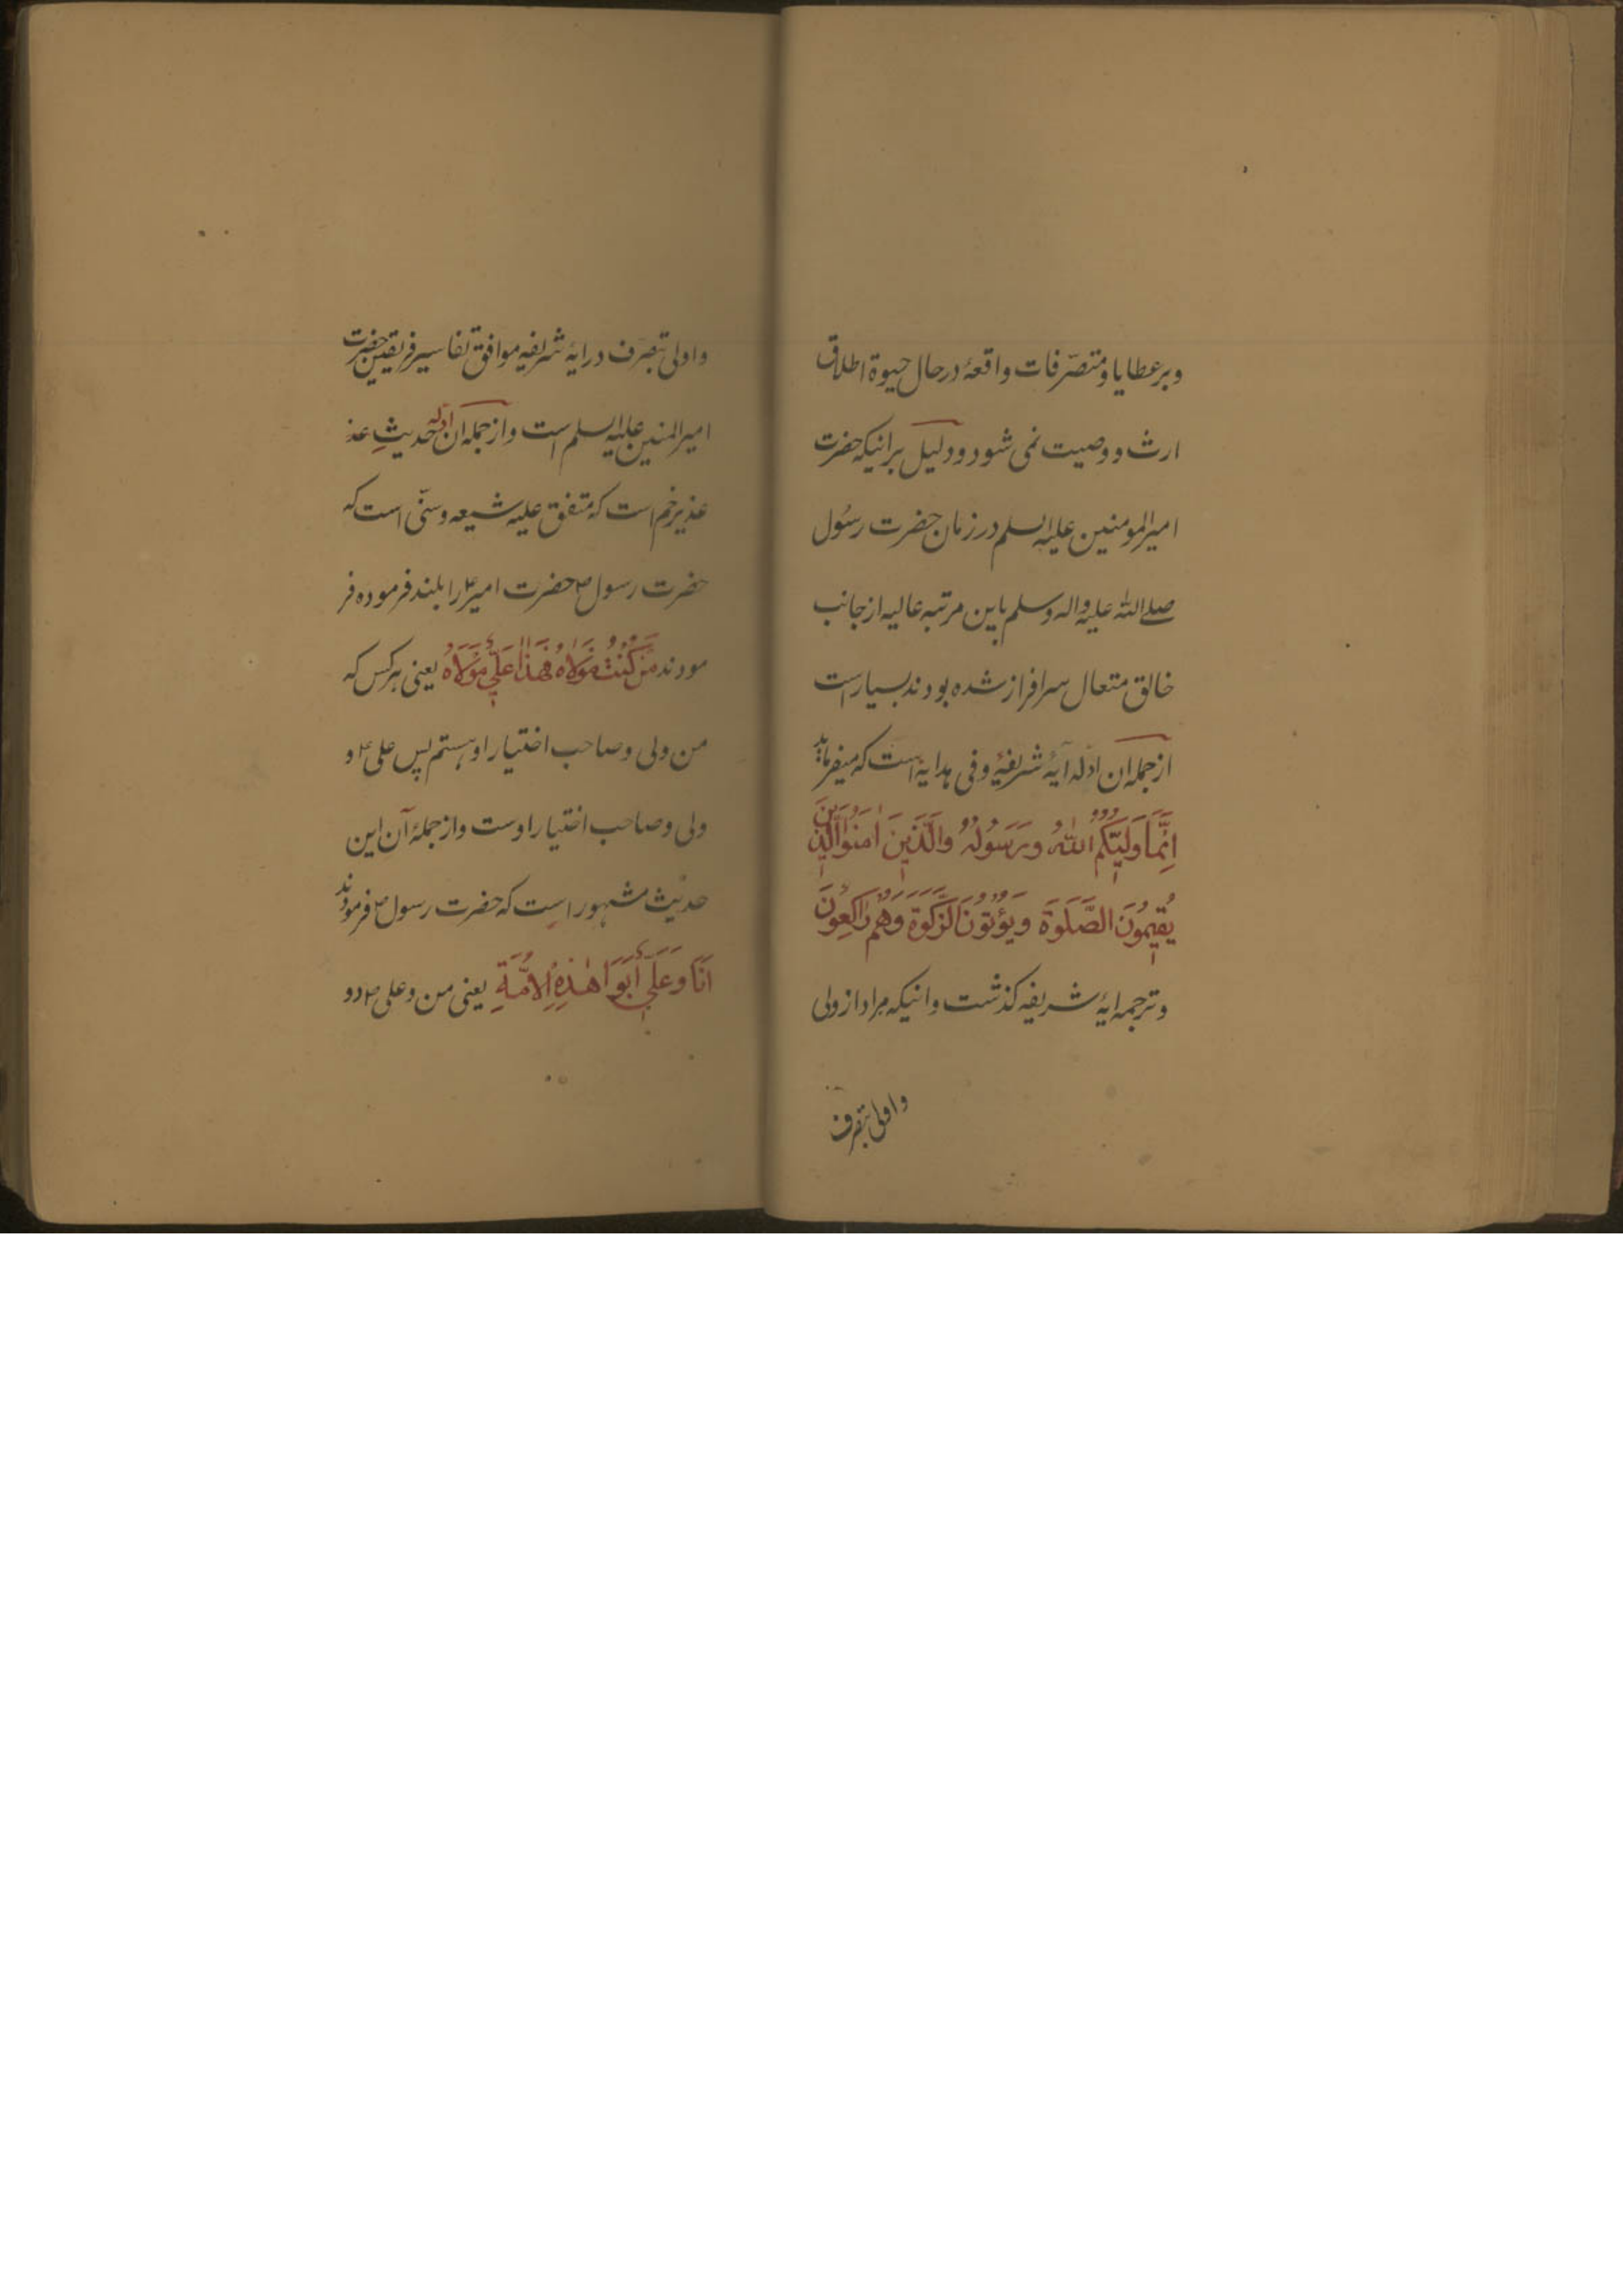 وبرعطایا ومتصرّفات واقعهٔ درحال حیوة اطلاق
ارث و وصیت نمی شود ودلیل برانیکه حضرت
امیرالمومنین علیه السلم در زمان حضرت رسُول
صلے اللّٰه علیه واله وسلم باین مرتبه عالیه از جانب
خالق متعال سرافراز شده بودند بسیار است
ازجمله ان ادّله آیهٔ شریفهٔ وفی هدایهٔ است که میفرماید
اِنَّمَا وَلِیُّکُمُ اللّٰهُ وَرَسُولُهُ وَالَّذِینَ اٰمَنُوا الَّذِینَ
یُقِیمُونَ الصَّلَوةَ وَیُؤْتُونَ الزَّکَوةَ وَهُمْ رَاکِعُونَ
وترجمه ایهٔ شریفه کذشت وانیکه مراد از ولی
واولی تبصرف
واولی تبصّرف درایهٔ شریفه موافق تفاسیر فریقین حضرت
امیرالمنین علیه السلم است وازجمله ان ادله حدیثِ عذ
عذیرخم است که متفق علیه شیعه وسنّی است که
حضرت رسول ص حضرت امیر ع را بلند فرموده فر
مودند مَنْ کُنْتُ مَوْلَاهُ فَهٰذَا عَلِیٌّ مَوْلَاهُ یعنی هرکس که
من ولی وصاحب اختیار او هستم پس علی ع و
ولی وصاحب اختیار اوست وازجملهٔ آن این
حدیث مشهور است که حضرت رسول ص فرمودند
اَنَا وَعَلِیٌّ أَبَوَا هٰذِهِ الْاُمَّةِ یعنی من وعلی ع دو